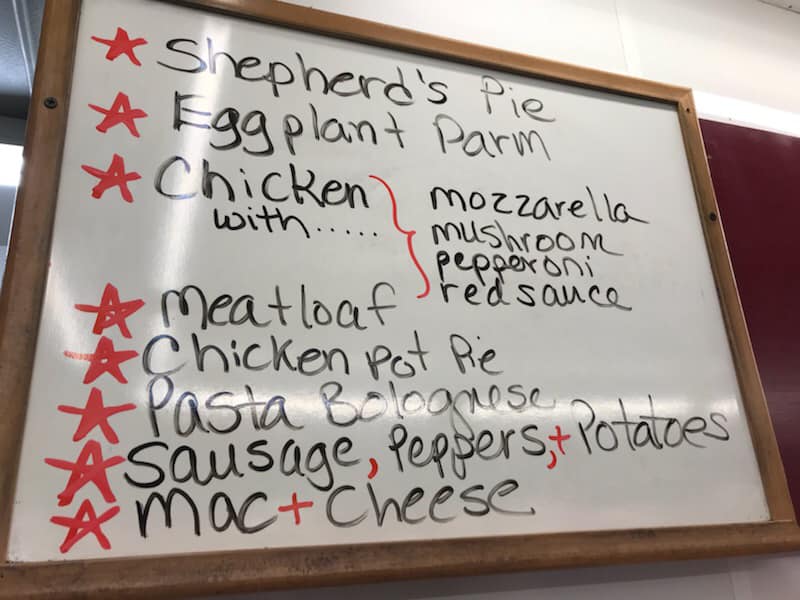 Shepherd's Pie
Eggplant Parm
Chicken
with.....
mozzarella
mushroom
pepperoni
red sauce
Meatloaf
Chicken Pot Pie
Pasta Bolognese
Sausage, Peppers, + Potatoes
Mac + Cheese